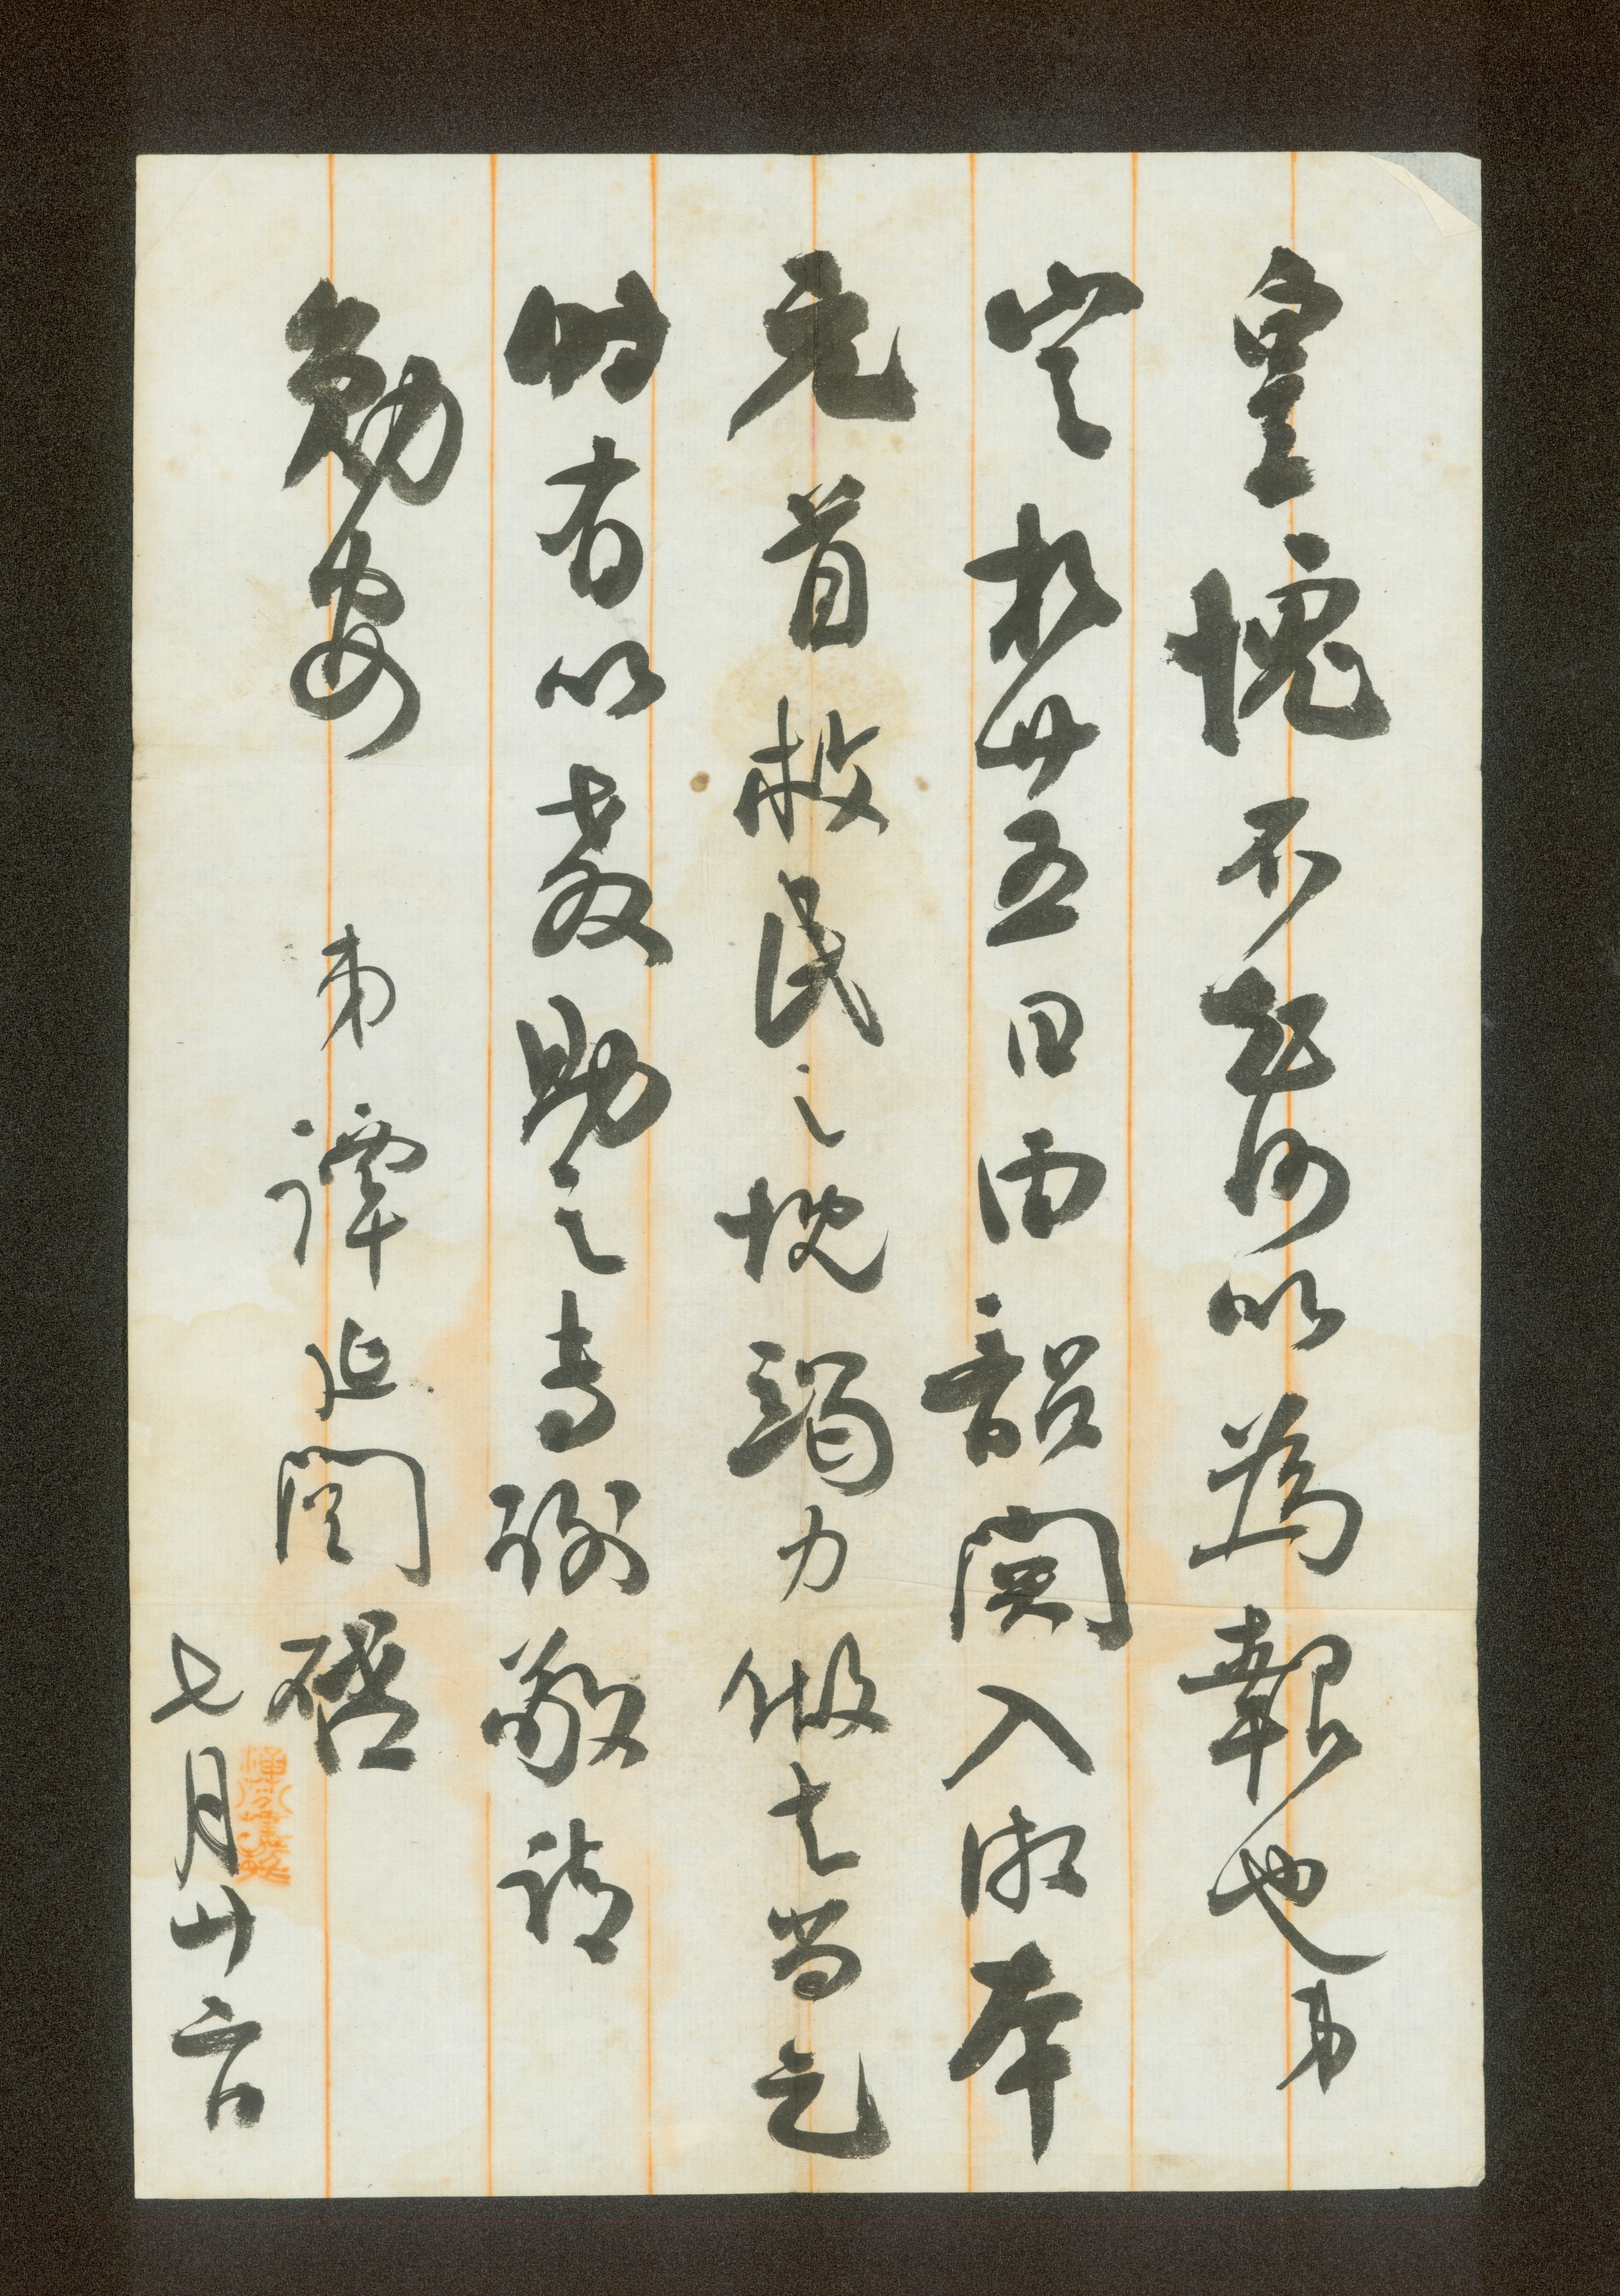 皇愧不知何以為報也弟
定於廿五日由韶關入湘本
元首救民之忱竭力做去尚乞
時有以教助之專謝敬請
勛安　弟譚延闓啓
七月廿六日